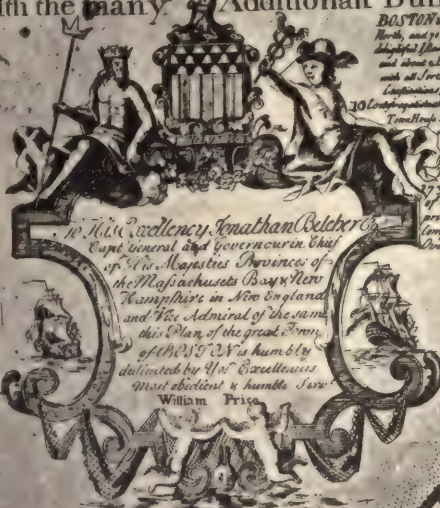 the many Additionall
BOSTON
North, and
delightful
and about
with all
10
Town House
To His Excellency Jonathan Belcher
Capt. General and Governour in Chief
of His Majesties Provinces of
the Massachusets Bay & New
Hampshire in New England
and Vice Admiral of the same
this Plan of the great Town
of BOSTON is humbly
dedicated by Yor. Excellencys
most obedient & humble Servt.
William Price